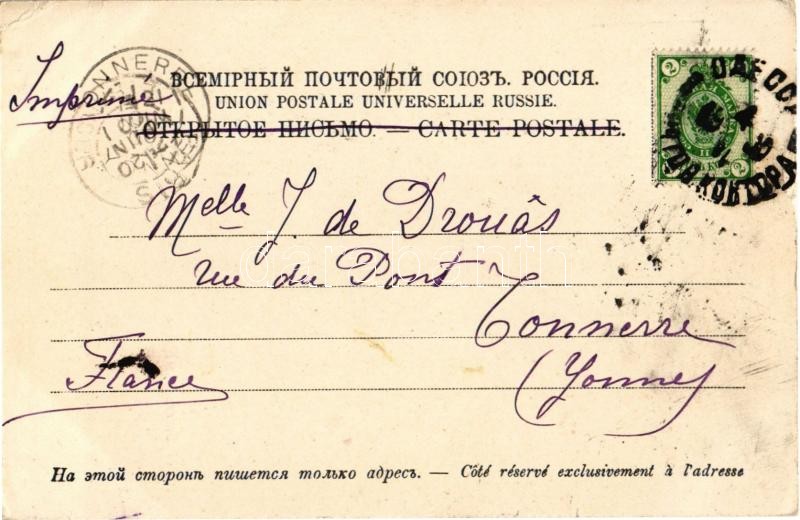 ВСЕМІРНЫЙ ПОЧТОВЫЙ СОЮЗЪ. РОССІЯ.
UNION POSTALE UNIVERSELLE RUSSIE.
ОТКРЫТОЕ ПИСЬМО. — CARTE POSTALE.
Imprimé
TONNERRE
2
2
ОДЕССА
КОНТОРА
Melle J. de Drouâs
rue du Pont
Tonnerre
(Yonne)
France
На этой сторонѣ пишется только адресъ. — Côté réservé exclusivement à l'adresse